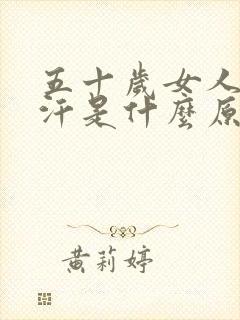 五十歲女人
汗是什麼原
黃莉婷